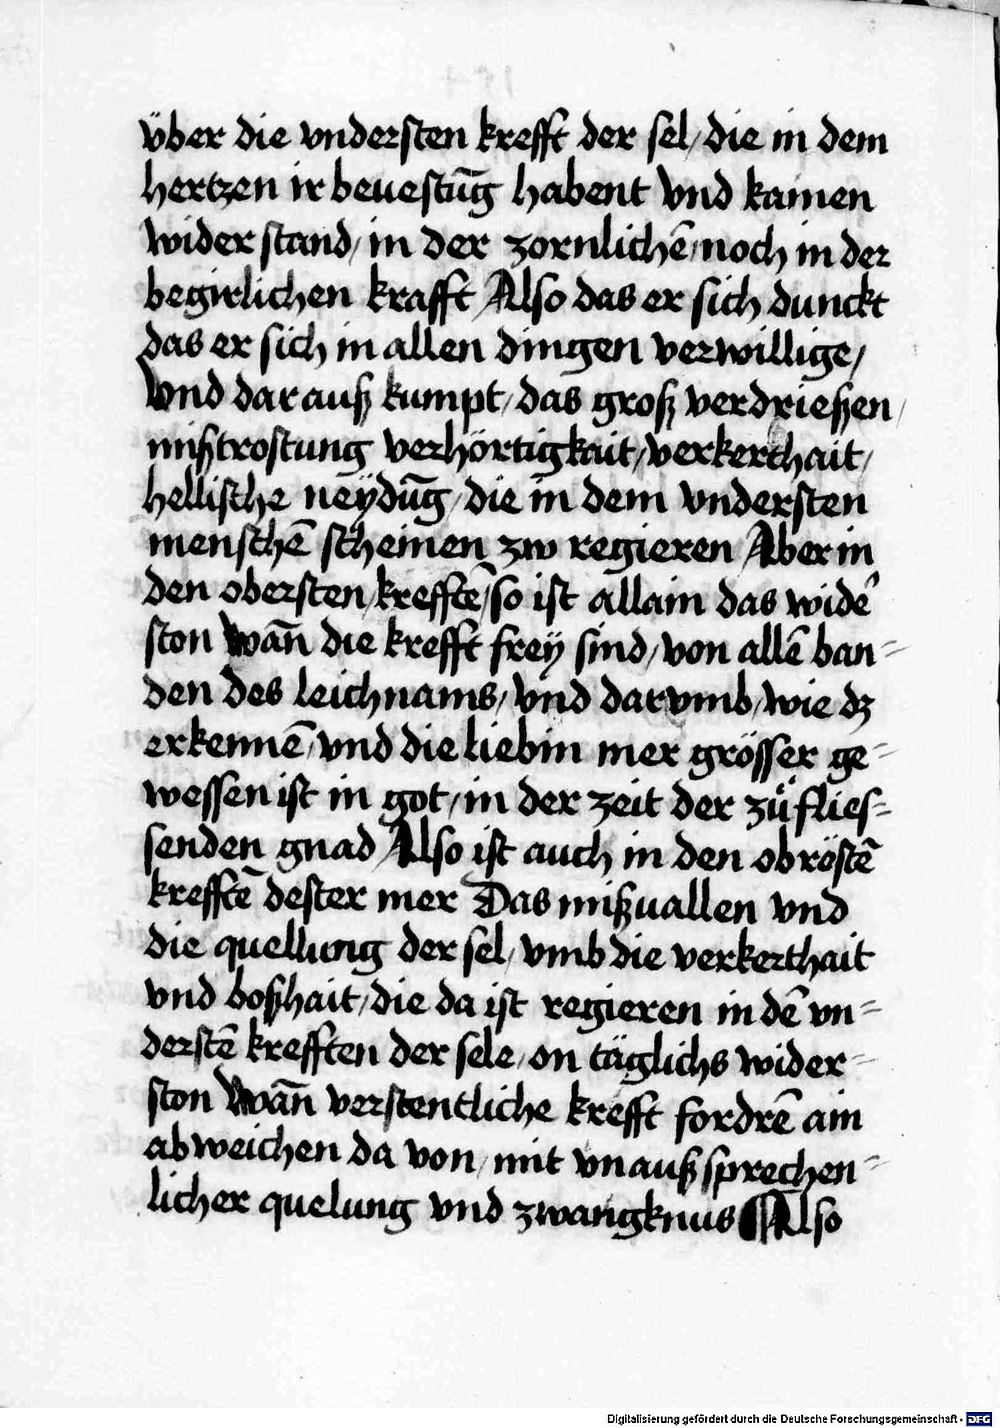 über die vndersten krefft der sel / die in dem
hertzen ir beuestūg habent Vnd kainen
wider stand / in der zornlichē / noch in der
begirlichen krafft Also das er sich dunckt
das er sich in allen dingen verwillige /
Vnd dar auß kumpt / das groß verdrießen /
mißtrostung verhörtigkait / verkerthait /
hellische neÿdūg / die in dem vndersten
menschē scheinen zw regieren Aber in
den obersten / krefftē / so ist allain das widẽ
ston Wañ die krefft freÿ sind / von allē ban=
den des leichnams / vnd dar vmb / wie dz
erkennē / vnd die liebin mer grösser ge=
wessen ist in got / in der zeit der zů flies=
senden gnad Also ist auch in den obrëstē
krefftē dester mer Das mißuallen vnd
die quellung der sel / vmb die verkerthait
vnd boßhait / die da ist regieren in dē vn=
derstē krefften der sele / on täglichs wider=
ston Wañ verstentliche krefft fordrē ain
abweichen da von / mit vnauß sprechen=
licher quelung vnd zwangknus Also
Digitalisierung gefördert durch die Deutsche Forschungsgemeinschaft - DFG